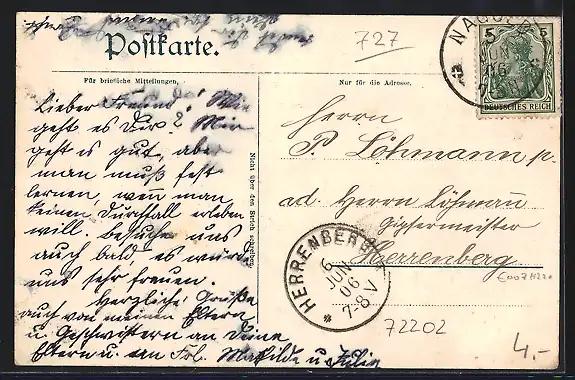 727
Postkarte.
Für briefliche Mitteilungen.
Nur für die Adresse.
Nicht über den Strich schreiben
NAGOLD
JUN
06
5 5
DEUTSCHES REICH
Lieber Freund! Wie
geht es Dir? Mir
geht es gut, aber
man muß fest
lernen, wenn man
keinen Durchfall erleben
will. Besuche uns
auch bald, es würde
uns sehr freuen.
Herzliche Grüße
auch von meinen Eltern
u. Geschwistern an Deine
Eltern u. an Frl. Mathilde u. Julie
Herrn
P. Löhmann p.
ad. Herrn Löhmann
Gipsermeister
Herrenberg
HERRENBERG
6
JUN
06
7-8 V
72202
4.-